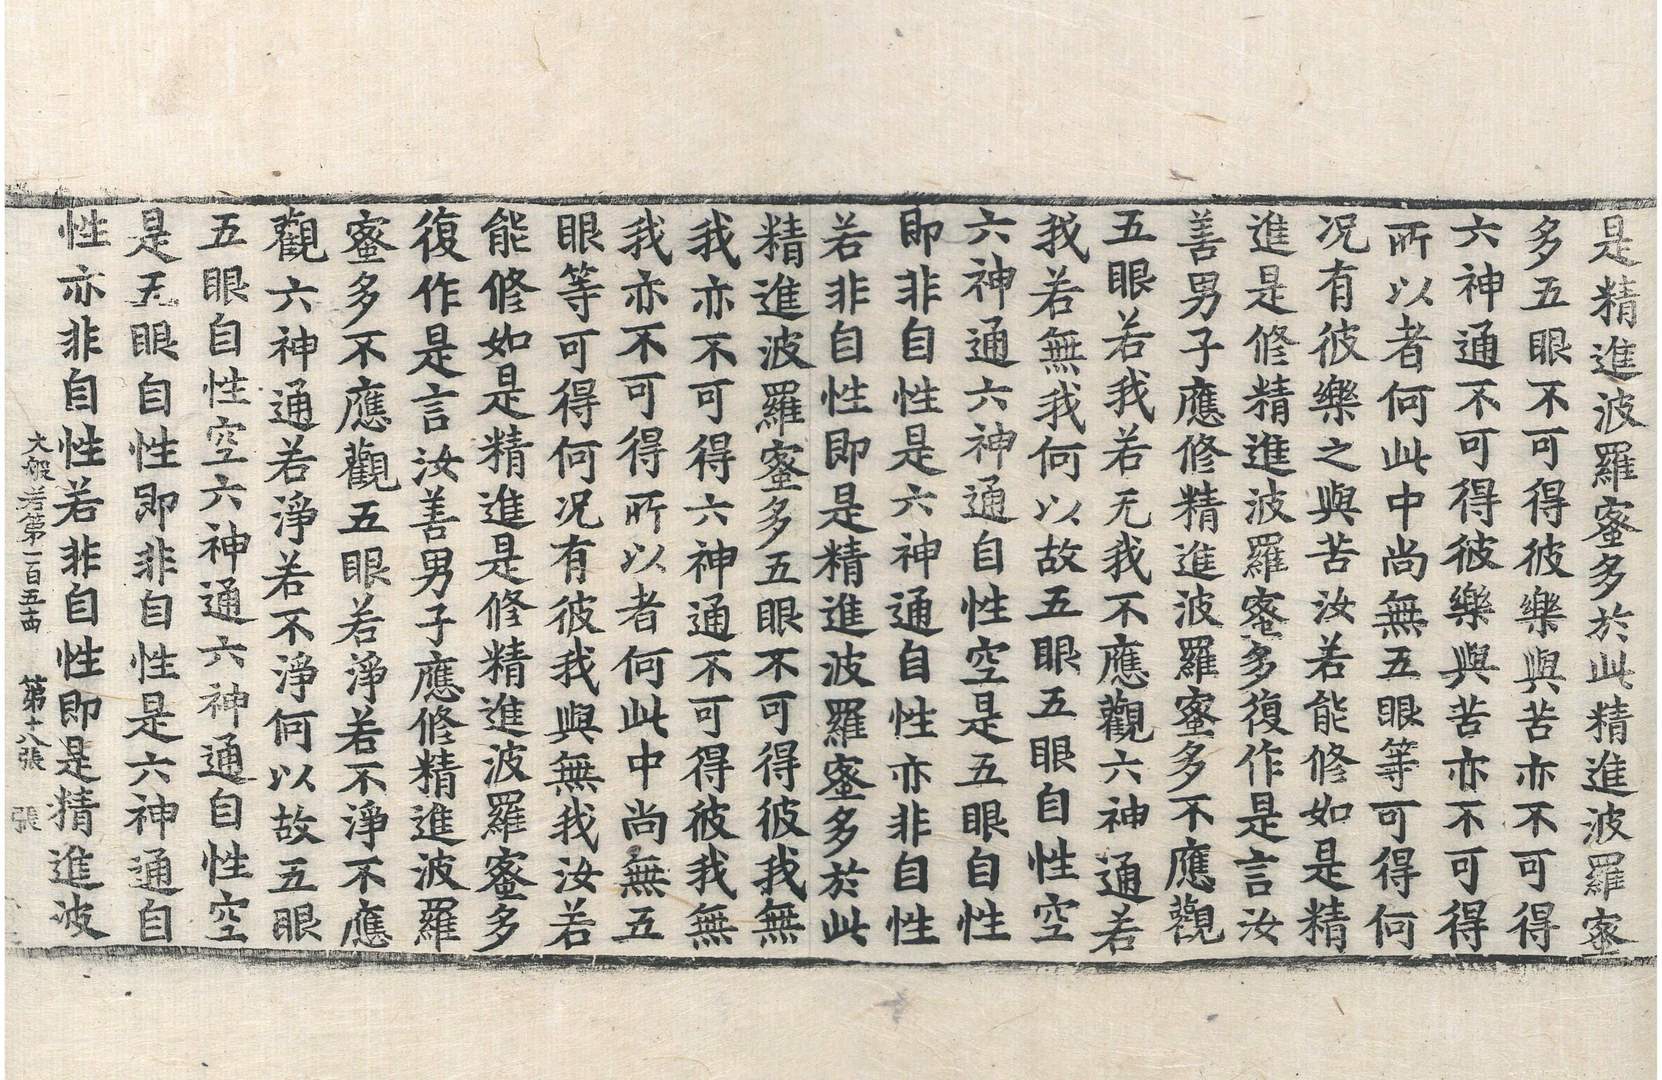 是精進波羅蜜多於此精進波羅蜜
多五眼不可得彼樂與苦亦不可得
六神通不可得彼樂與苦亦不可得
所以者何此中尚無五眼等可得何
况有彼樂之與苦汝若能修如是精
進是修精進波羅蜜多復作是言汝
善男子應修精進波羅蜜多不應觀
五眼若我若无我不應觀六神通若
我若無我何以故五眼五眼自性空
六神通六神通自性空是五眼自性
即非自性是六神通自性亦非自性
若非自性即是精進波羅蜜多於此
精進波羅蜜多五眼不可得彼我無
我亦不可得六神通不可得彼我無
我亦不可得所以者何此中尚無五
眼等可得何况有彼我與無我汝若
能修如是精進是修精進波羅蜜多
復作是言汝善男子應修精進波羅
蜜多不應觀五眼若淨若不淨不應
觀六神通若淨若不淨何以故五眼
五眼自性空六神通六神通自性空
是五眼自性即非自性是六神通自
性亦非自性若非自性即是精進波
大般若第一百五十四 第十八張 張